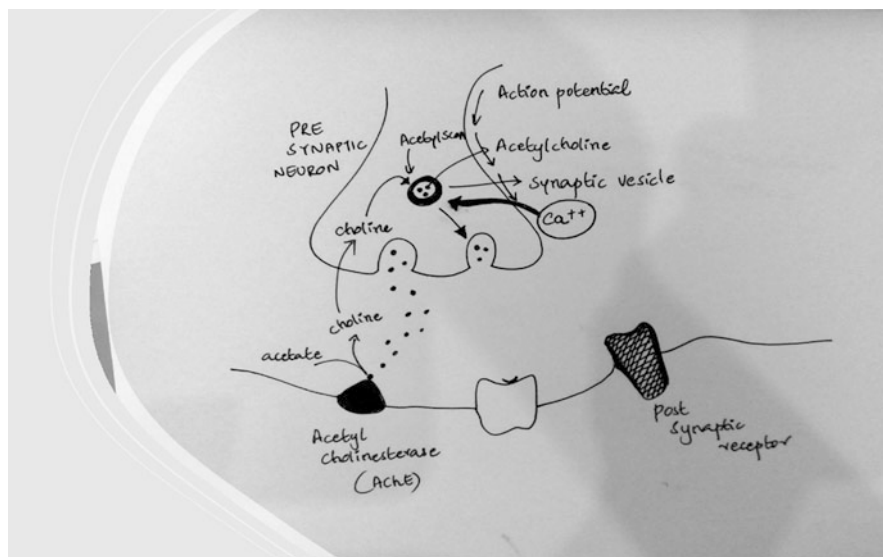 Action potential
PRE
SYNAPTIC
NEURON
Acetylcholine
synaptic vesicle
Ca++
choline
choline
acetate
Acetyl
cholinesterase
(AChE)
Post
synaptic
receptor